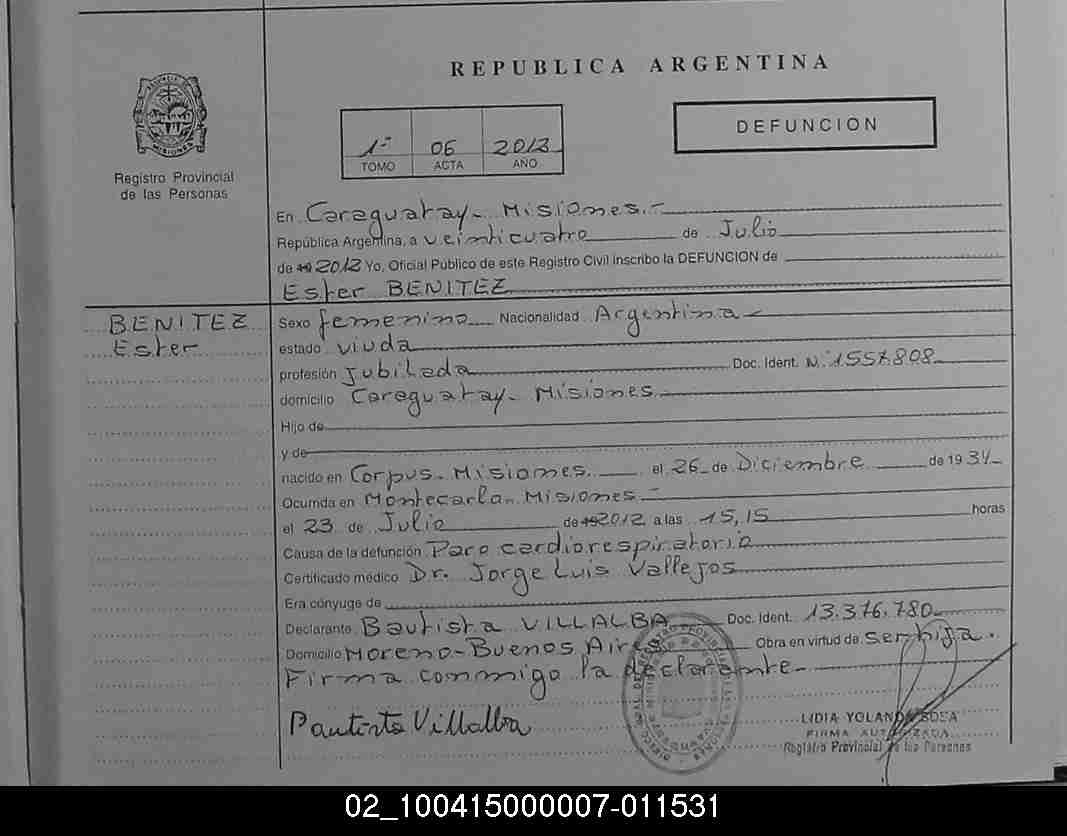 REPUBLICA ARGENTINA
DEFUNCION
1º 06 2012
TOMO ACTA AÑO
MISIONES
Registro Provincial
de las Personas
En Caraguatay - Misiones.-
República Argentina, a veinticuatro de Julio
de 19 2012 Yo, Oficial Público de este Registro Civil inscribo la DEFUNCION de
Ester BENITEZ
BENITEZ
Ester
Sexo femenino Nacionalidad Argentina
estado viuda
profesión Jubilada Doc. Ident. Nº 1557.808
domicilio Caraguatay - Misiones
Hijo de
y de
nacido en Corpus - Misiones. el 26 de Diciembre de 1934
Ocurrida en Montecarlo - Misiones -
el 23 de Julio de 19 2012 a las 15,15 horas
Causa de la defunción Paro cardiorespiratorio
Certificado médico Dr. Jorge Luis Vallejos
Era cónyuge de
Declarante Bautista VILLALBA Doc. Ident. 13.376.780
Domicilio Moreno - Buenos Aires Obra en virtud de ser hija.
Firma conmigo la declarante
Bautista Villalba
LIDIA YOLANDA SOSA
FIRMA AUTORIZADA
Registro Provincial de las Personas
02_100415000007-011531